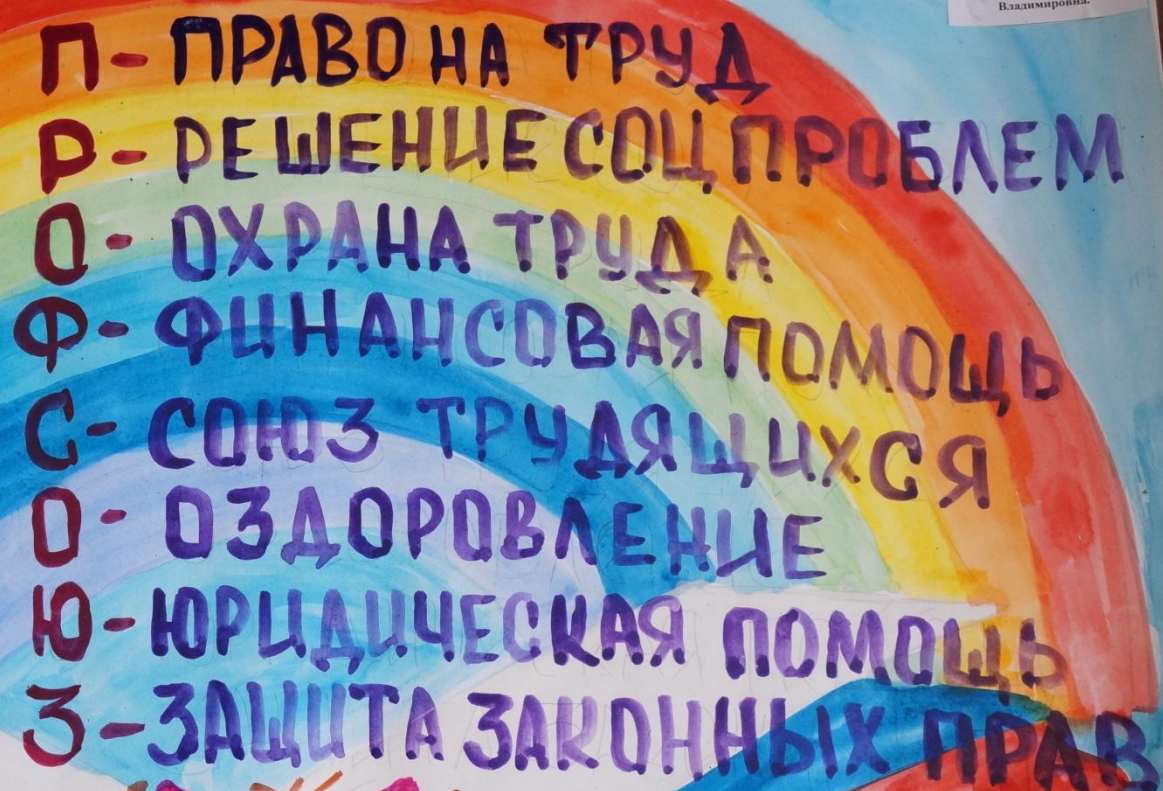 Владимировна.
П - ПРАВО НА ТРУД
Р - РЕШЕНИЕ СОЦ ПРОБЛЕМ
О - ОХРАНА ТРУДА
Ф - ФИНАНСОВАЯ ПОМОЩЬ
С - СОЮЗ ТРУДЯЩИХСЯ
О - ОЗДОРОВЛЕНИЕ
Ю - ЮРИДИЧЕСКАЯ ПОМОЩЬ
З - ЗАЩИТА ЗАКОННЫХ ПРАВ